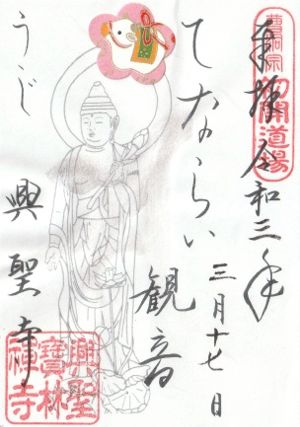 曹洞宗
初開道場
奉拝 令和三年
三月十七日
てならい
観音
うじ
興聖寺
興聖
寶林
禅寺